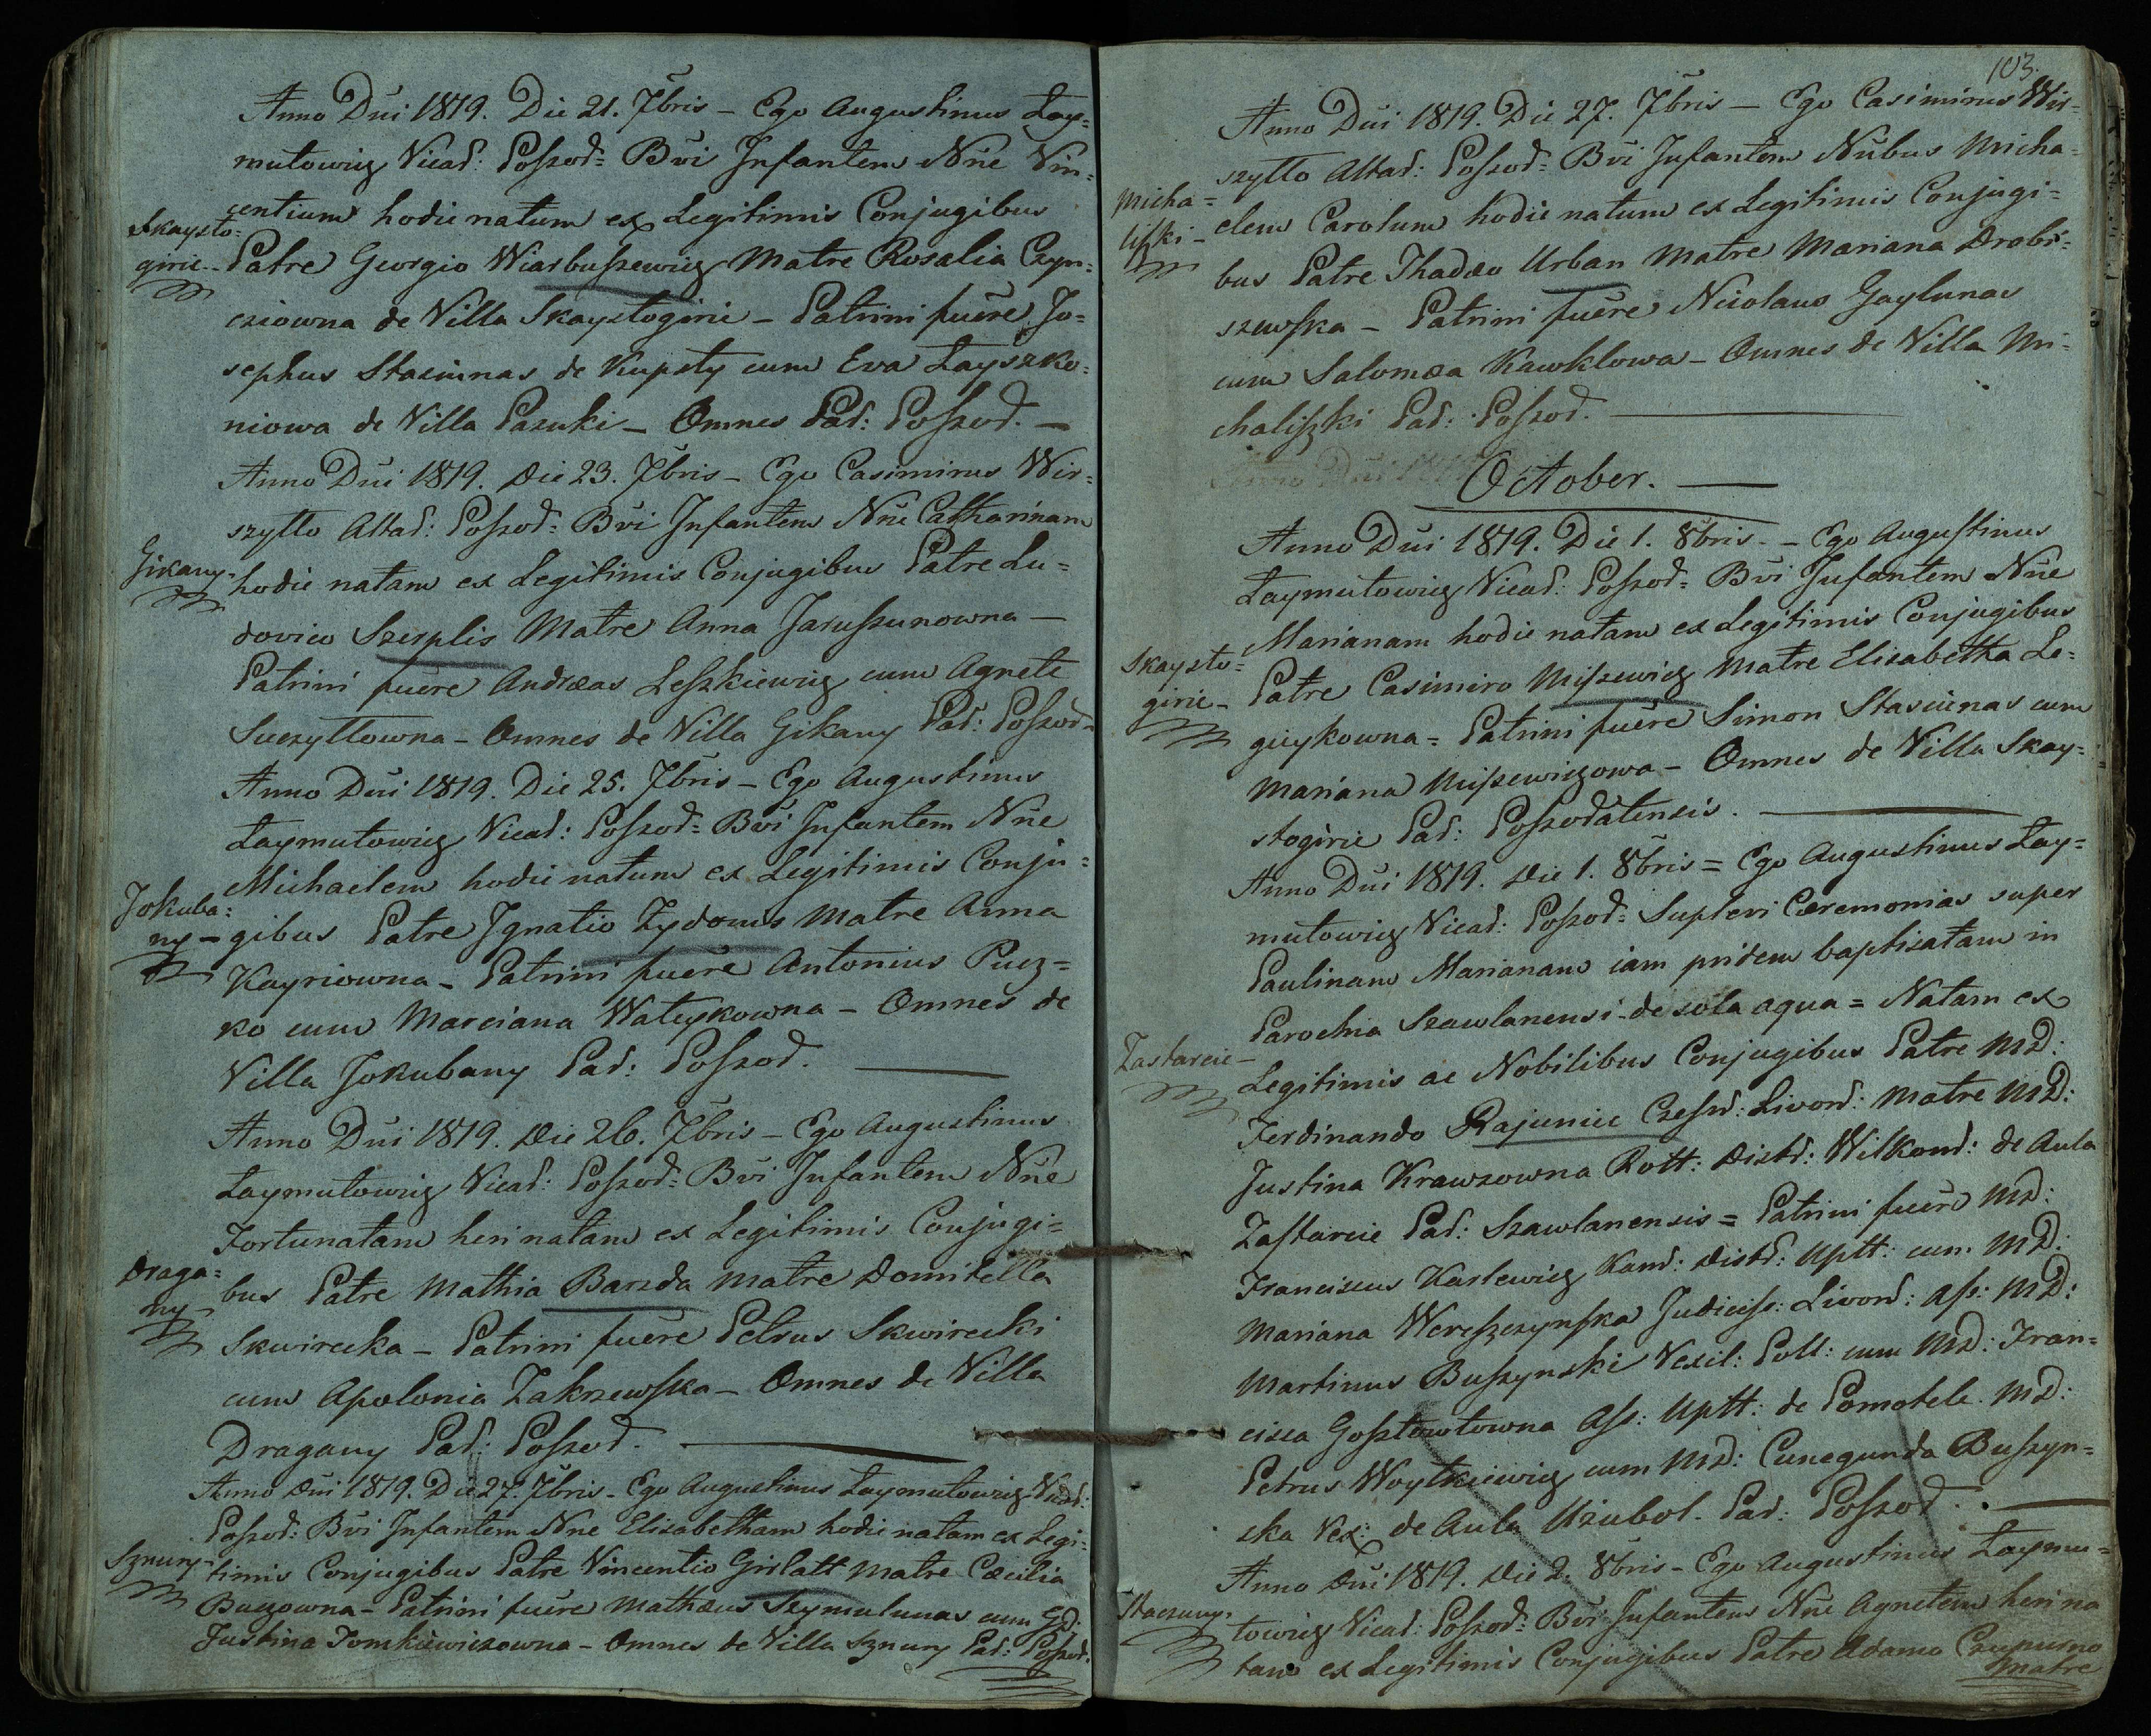 Anno Dni 1819. Die 21. 7bris – Ego Augustinus Łay=
mutowicz Vicad: Poszod= Bvi Infantem Nne Vin=
centium hodie natum ex Legitimis Conjugibus
Skaysto=
girie – Patre Georgio Wiarbuszewicz Matre Rosalia Czyn=
ciowna de Villa Skaystogirie – Patrini fuere Jo=
sephus Stasiunas de Kupsty cum Eva Łayszko=
niowa de Villa Pazuki – Omnes Pad: Poszod. –
Anno Dni 1819. Die 23. 7bris – Ego Casimirus Wir=
szyłło Altad: Poszod= Bvi Infantem Nne Catharinam
Gikany – hodie natam ex Legitimis Conjugibus Patre Lu=
dovico Szerplis Matre Anna Jaruszunowna –
Patrini fuere Andræas Leszkiewicz cum Agnete
Suczyłłowna – Omnes de Villa Gikany Pad: Poszod–
Anno Dni 1819. Die 25. 7bris – Ego Augustinus
Łaymutowicz Vicad: Poszod= Bvi Infantem Nne
Michaelem hodie natum ex Legitimis Conju=
Jokuba=
ny – gibus Patre Ignatio Zydonis Matre Anna
Kayriowna – Patrini fuere Antonius Pucz=
ko cum Marciana Wateykowna – Omnes de
Villa Jokubany Pad: Poszod.
Anno Dni 1819. Die 26. 7bris – Ego Augustinus
Łaymutowicz Vicad: Poszod= Bvi Infantem Nne
Fortunatam heri natam ex Legitimis Conjugi=
Draga=
ny – bus Patre Mathia Barzda Matre Domitella
Skwirecka – Patrini fuere Petrus Skwirecki
cum Apolonia Zakrzewska – Omnes de Villa
Dragany Pad: Poszod.
Anno Dni 1819. Die 27. 7bris – Ego Augustinus Łaymutowicz Vicad:
Poszod: Bvi Infantem Nne Elisabetham hodie natam ex Legi=
Sznury – timis Conjugibus Patre Vincentio Grilatt Matre Cæcilia
Buczowna – Patrini fuere Mathæus Szymulunas cum GD:
Justina Tomkiewiczowna – Omnes de Villa Sznury Pad: Poszod.
103.
Anno Dni 1819. Die 27. 7bris – Ego Casimirus Wir=
szyłło Altad: Poszod= Bvi Infantem Nnbus Micha=
Micha=
liszki – elem Carolum hodie natum ex Legitimis Conjugi=
bus Patre Thadæo Urban Matre Mariana Drobi=
szewska – Patrini fuere Nicolaus Gaylunas
cum Salomæa Kawklowa – Omnes de Villa Mi=
chaliszki Pad: Poszod.
October.
Anno Dni 1819. Die 1. 8bris – Ego Augustinus
Łaymutowicz Vicad: Poszod= Bvi Infantem Nne
Marianam hodie natam ex Legitimis Conjugibus
Skaysto=
girie – Patre Casimiro Miszewicz Matre Elisabetha Le=
gieykowna = Patrini fuere Simon Stasiunas cum
Mariana Miszewiczowa – Omnes de Villa Skay=
stogirie Pad: Poszodatensis.
Anno Dni 1819. Die 1. 8bris = Ego Augustinus Łay=
mutowicz Vicad: Poszod= Suplevi Cæremonias super
Paulinam Marianam iam pridem baptisatam in
Parochia Szawlanensi – de sola aqua = Natam ex
Zastarcie – Legitimis ac Nobilibus Conjugibus Patre MD:
Ferdinando Rajuniec Czesnd: Livond: Matre MD:
Justina Krawzowna Rott: Distd: Wilkomd: de Aula
Zastarcie Pad: Szawlanensis = Patrini fuere MD:
Franciscus Karlewicz Kamd: Distd: Uptt: cum MD:
Mariana Wereszczynska Judiciss: Livond: ass: MD:
Martinus Buszynski Vexil: Poll: cum MD: Fran=
cisca Gosztowtowna Ass: Uptt: de Pomotele. MD:
Petrus Woytkiewicz cum MD: Cunegunda Buszyn=
ska Vex: de Aula Uzubol. Pad: Poszod.
Anno Dni 1819. Die 2. 8bris – Ego Augustinus Łaymu=
Staczuny – towicz Vicad: Poszod= Bvi Infantem Nne Agnetem heri na
tam ex Legitimis Conjugibus Patre Adamo Czupurno
Matre